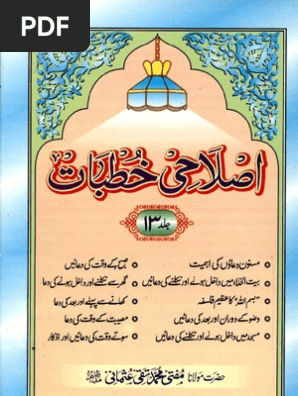 PDF
اصلاحی خطبات
جلد ۱۳
مسنون دعاؤں کی اہمیت
صبح کے وقت کی دعائیں
بیت الخلاء میں داخل ہونے اور نکلنے کی دعائیں
گھر سے نکلنے اور داخل ہونے کی دعا
"بسم اللہ" کا عظیم فلسفہ
کھانے سے پہلے اور بعد کی دعا
وضو کے دوران اور بعد کی دعائیں
مصیبت کے وقت کی دعا
مسجد میں داخل ہونے اور نکلنے کی دعائیں
سوتے وقت کی دعائیں اور اذکار
حضرت مولانا مفتی محمد تقی عثمانی